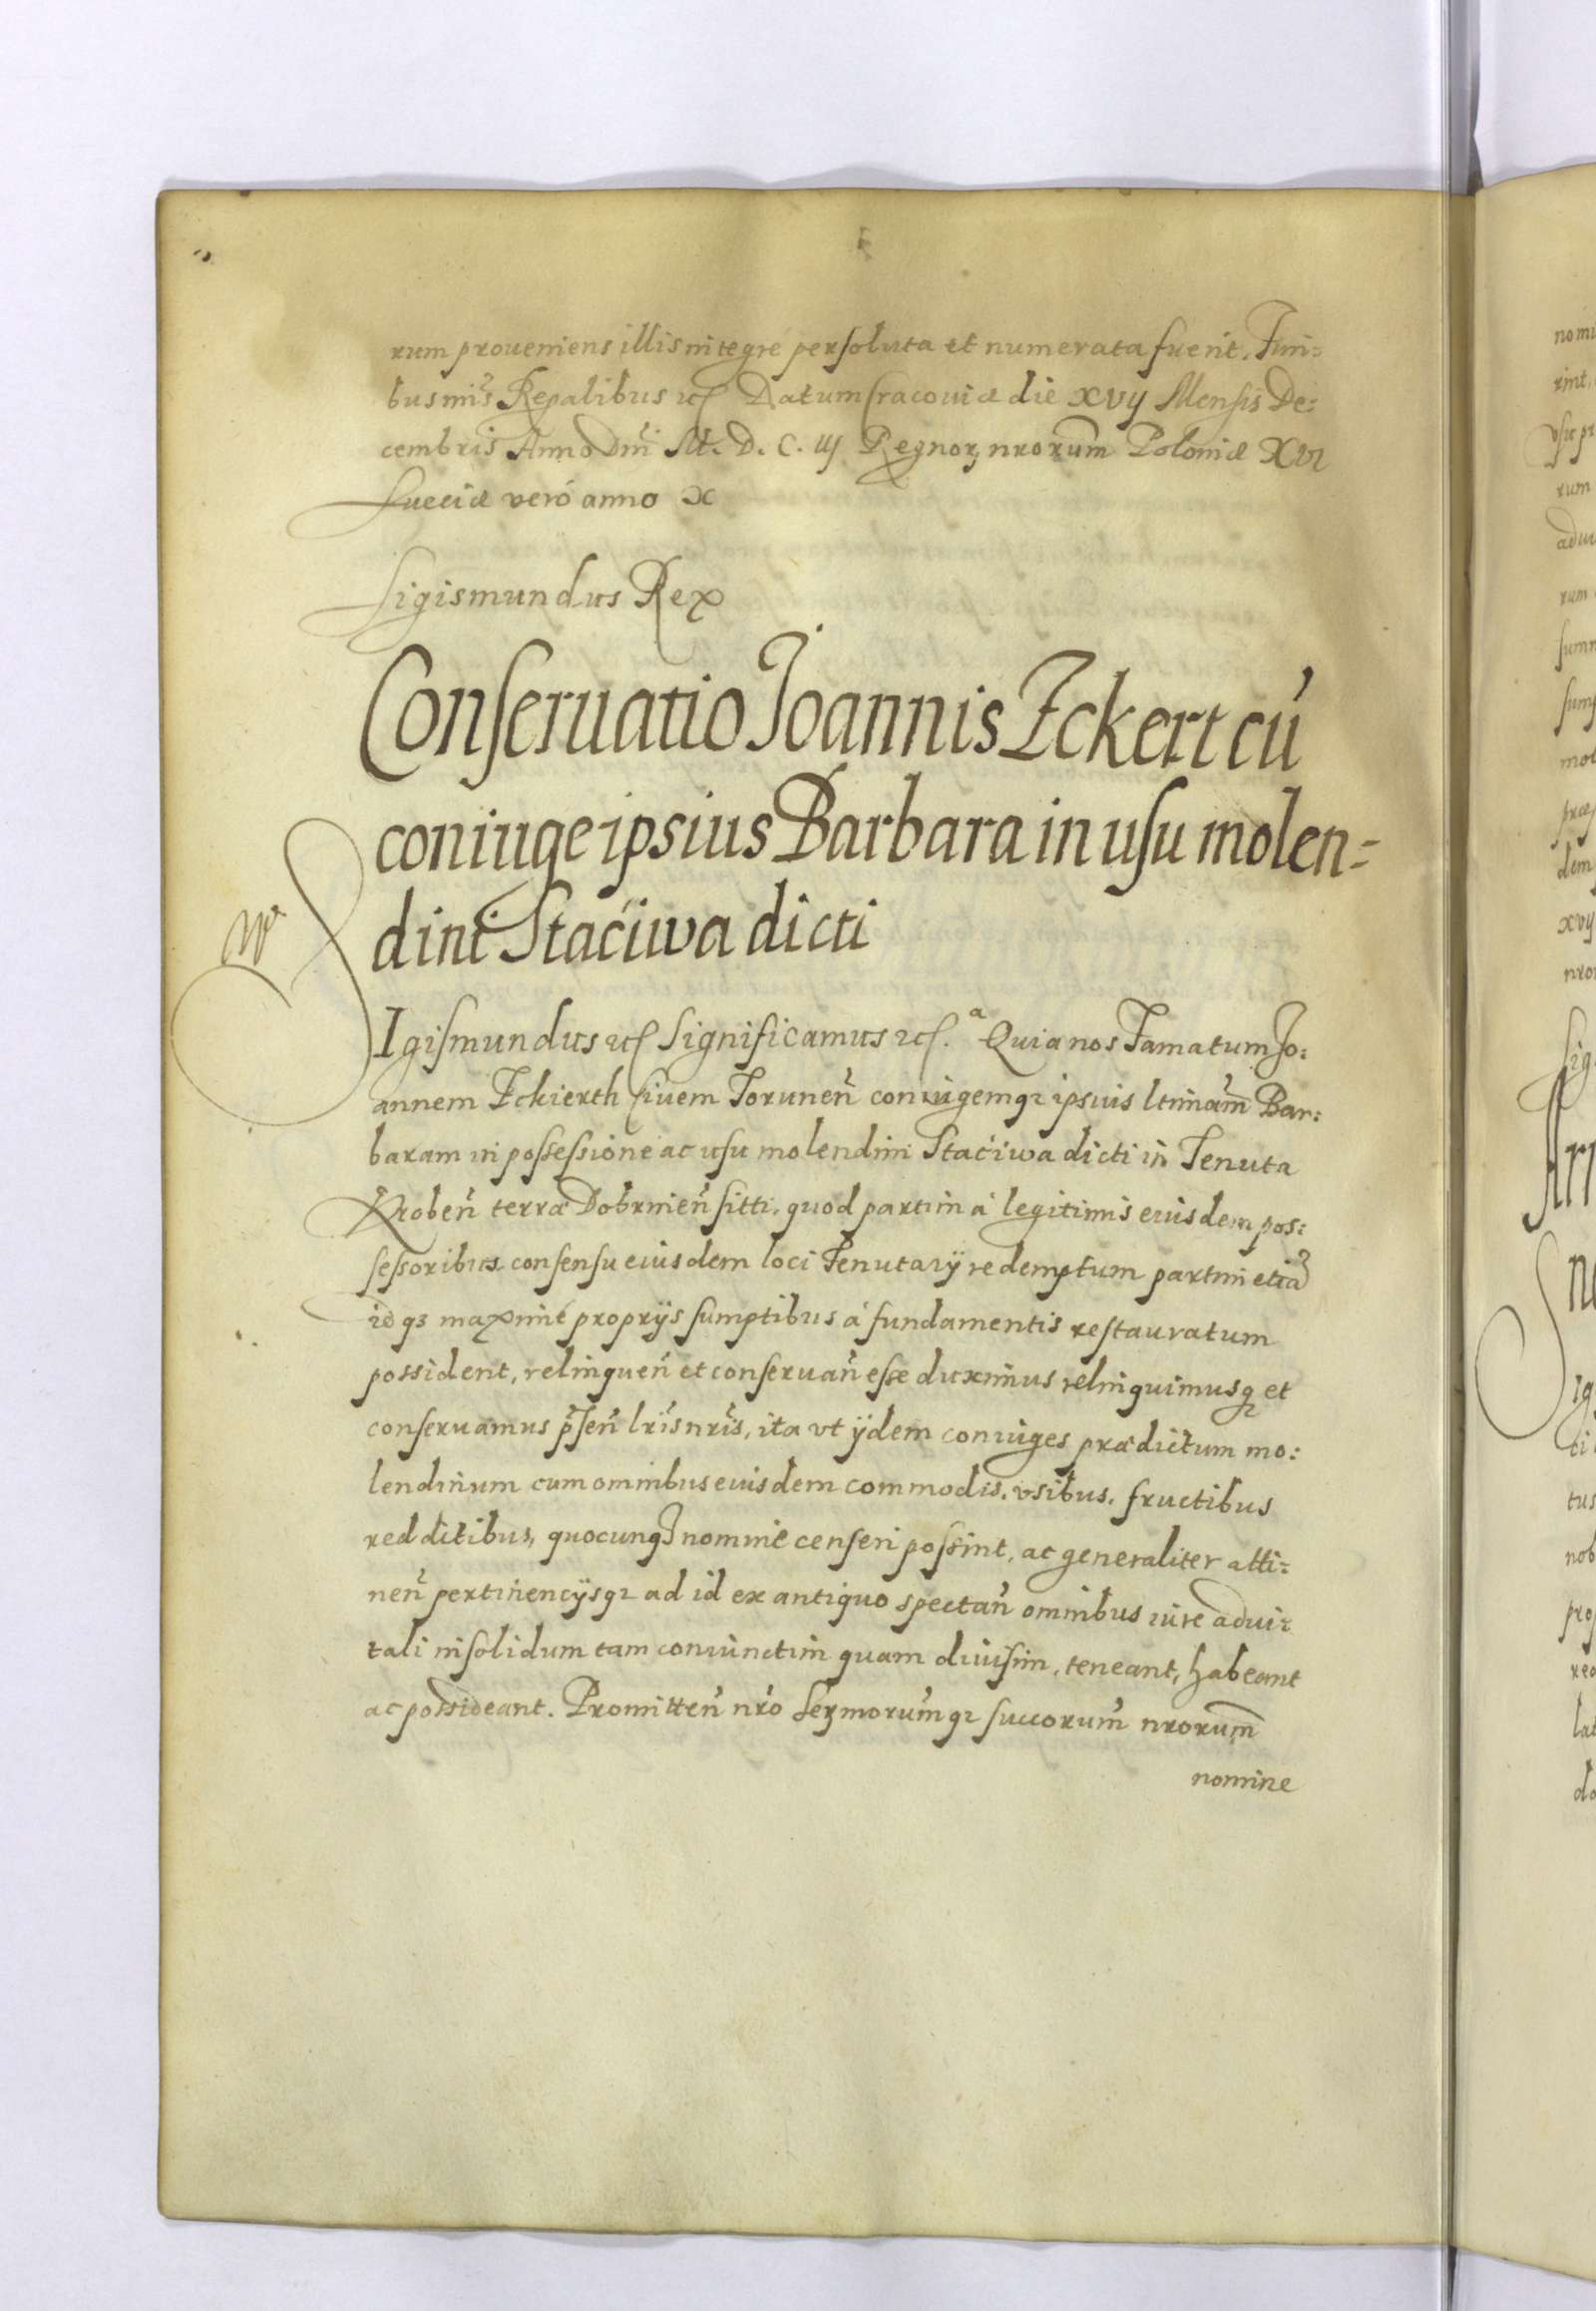 rum proueniens illis integre persoluta et numerata fuerit. Juri=
bus nr̃is Regalibus etc̃ Datum Cracouiæ die XVIJ Mensis De:
cembris Anno Dñi M. D. C. IIJ Regnorȝ nrorum̃ Poloniæ XVI
Sueciæ veró anno X
Sigismundus Rex
Conseruatio Joannis Eckert cũ
coniuge ipsius Barbara in usu molen=
dini Staciiwa dicti
SIgismundus etc̃ Significamus etc̃. Quia nos Famatum Jo:
annem Eckierth Ciuem Torunen̄ coniugemqȝ ipsius ltimam̃ Bar:
baram in possessione ac usu molendini Staciwa dicti in Tenuta
Broben̄ terræ Dobrinien̄ sitti. quod partim á legitimis eiusdem pos:
sessoribus consensu eiusdem loci Tenutarij redemptum partim etiã
idqȝ maximé proprijs sumptibus á fundamentis restauratum
possident, relinquen̄ et conseruan̄ esse duximus relinquimusqȝ et
conseruamus p̃sen̄ lr̃is nr̃is, ita vt ijdem coniuges prædictum mo:
lendinum cum omnibus eiusdem commodis. vsibus. fructibus
redditibus, quocunqȝ nomine censeri possint, ac generaliter atti=
nen̄ pertinencijsqȝ ad id ex antiquo spectan̄ omnibus iure adui=
tali insolidum tam coniunctim quam diuisim, teneant, habeant
ac possideant. Promitten̄ nr̃o Serȝmorum̃qȝ succorum̃ nrorum̃
nomine